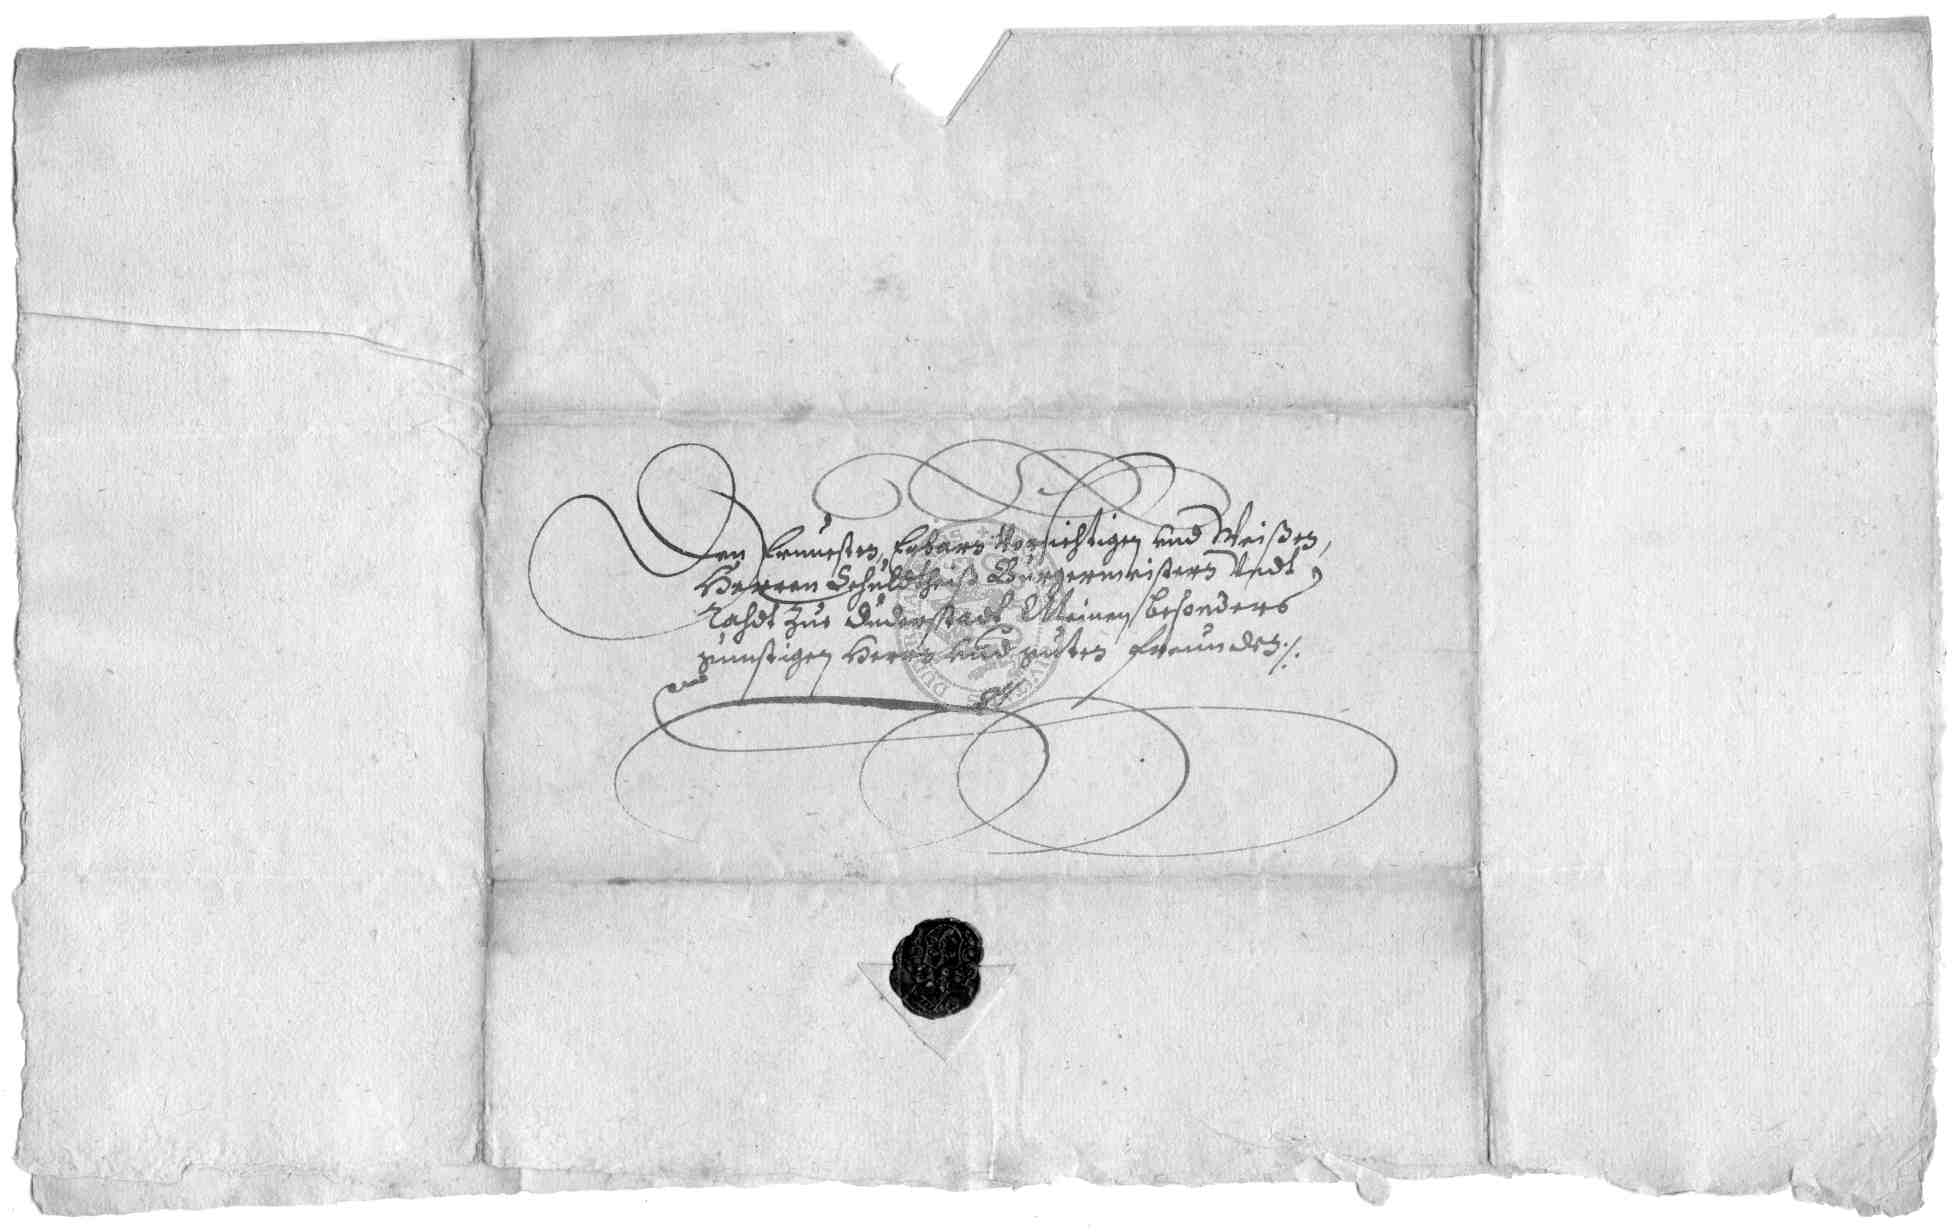 Den Ernuesten, Erbarn Vorsichtigen vnd Weißen,
Herren Schuldtheiß Bürgermeistern Vndt
Rahdt zue Duderstadt Meinen besonders
günstigen Herrn vnd guten Freunden ./.